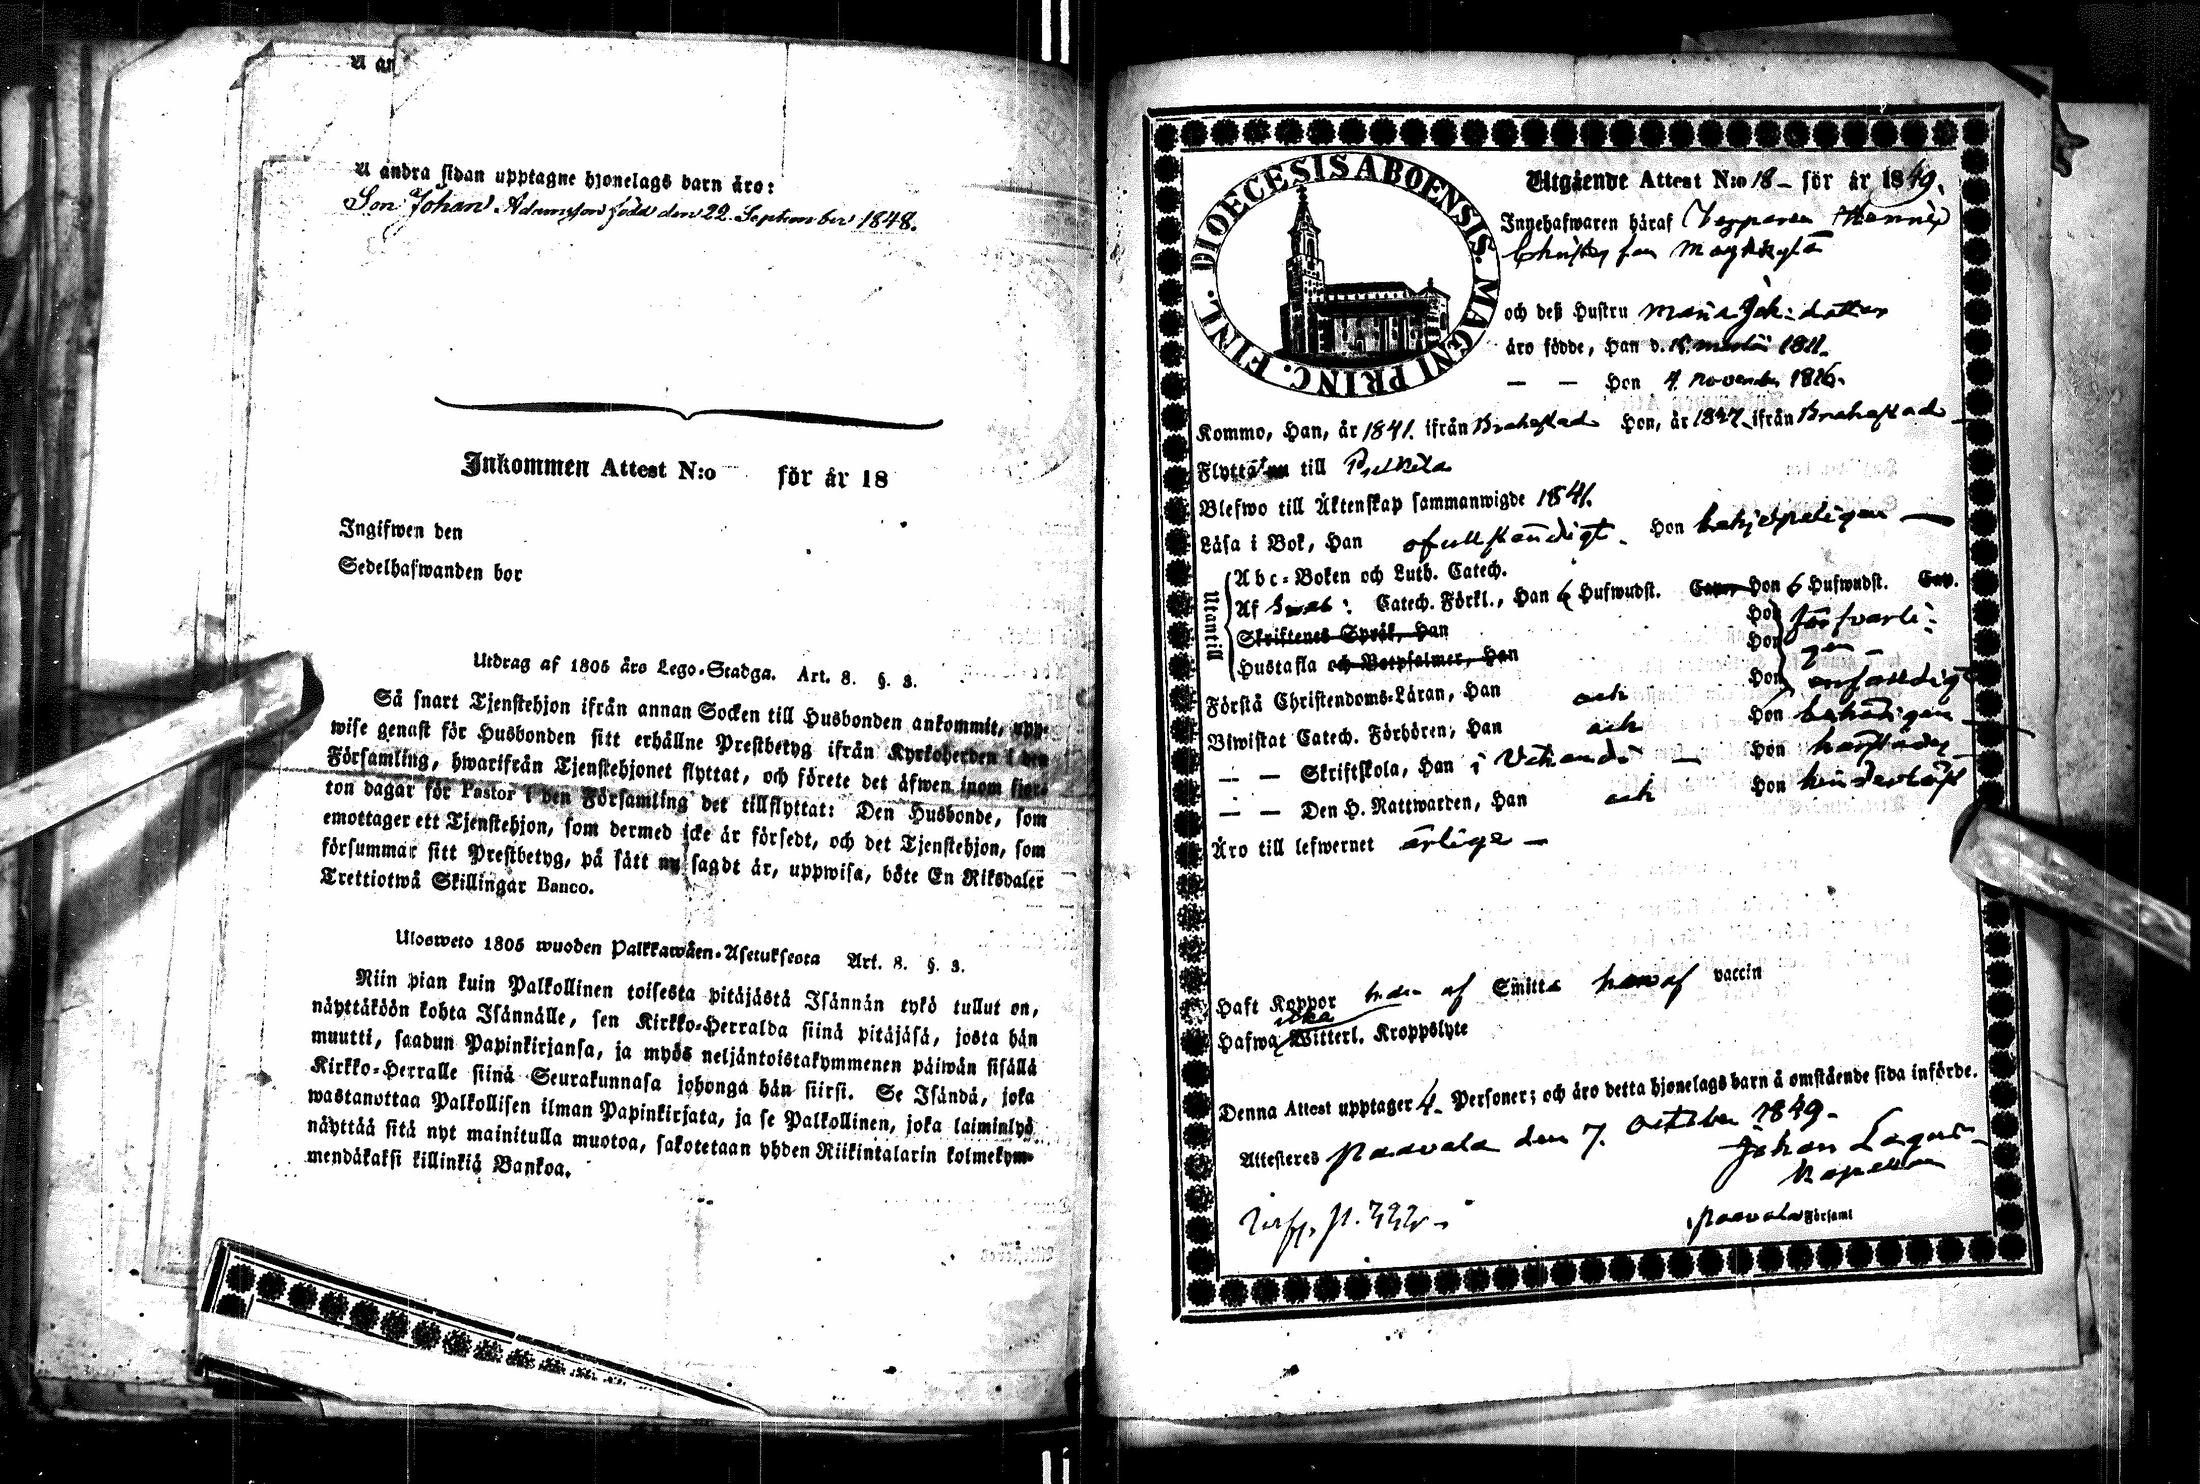 A an
A andra sidan upptagne hjonelags barn äro:
Son Johan Adamsson född den 22 September 1848.
Inkommen Attest N:o för år 18
Ingifwen den
Sedelhafwanden bor
Utdrag af 1805 års Lego-Stadga. Art. 8. §. 3.
Så snart Tjenstehjon ifrån annan Socken till Husbonden ankommit, upp-
wise genast för Husbonden sitt erhållne Prestbetyg ifrån Kyrkoherden i den
Församling, hwarifrån Tjenstehjonet flyttat, och förete det äfwen inom fjor-
ton dagar för Pastor i den Församling det tillflyttat: Den Husbonde, som
emottager ett Tjenstehjon, som dermed icke är försedt, och det Tjenstehjon, som
försummar sitt Prestbetyg, på sätt nu sagdt är, uppwisa, böte En Riksdaler
Trettiotwå Skillingar Banco.
Ulosweto 1805 wuoden Palkkawäen-Asetuksesta Art. 8. §. 3.
Niin pian kuin Palkollinen toisesta pitäjästä Isännän tykö tullut on,
näyttäköön kohta Isännälle, sen Kirkko-Herralda siinä pitäjäsä, josta hän
muutti, saadun Papinkirjansa, ja myös neljäntoistakymmenen päiwän sisällä
Kirkko-Herralle siinä Seurakunnasa johonga hän siirsi. Se Isändä, joka
wastanottaa Palkollisen ilman Papinkirjata, ja se Palkollinen, joka laiminlyö
näyttää sitä nyt mainitulla muotoa, sakotetaan yhden Riikintalarin kolmekym-
mendäkaksi killinkiä Bankoa.
DIOECESIS ABOENSIS. MAGNI PRINC. FINL.
Utgående Attest N:o 18 – för år 1849.
Innehafwaren häraf
och deß Hustru Maria Joh: dotter
äro födde, Han d. 15. Martii 1811.
— — Hon 4. November 1826.
Kommo, Han, år 1841. ifrån Brahestad Hon, år 1847. ifrån Brahestad
Flytta nu till Pulkkila
Blefwo till Äktenskap sammanwigde 1841.
Läsa i Bok, Han ofullständigt. Hon behjelpeligen —
Utantill
Abc-Boken och Luth. Catech.
Af Sweb: Catech. Förkl., Han 6 Hufwudst. Cap. Hon 6 Hufwudst. Cap.
Skriftenes Språk, Han Hon försvarli-
Hustafla och Botpsalmer, Han Hon gen –
Förstå Christendoms-Läran, Han och Hon enfaldigt
Biwistat Catech. Förhören, Han och Hon behörigen —
— — Skriftskola, Han i Hon
— — Den H. Nattwarden, Han och Hon hinderlöst
Äro till lefwernet ärlige —
Haft Koppor af Smitta vaccin
Hafwa icke Witterl. Kroppslyte
Denna Attest upptager 4. Personer; och äro detta hjonelags barn å omstående sida införde.
Attesteres Paavola den 7. October 1849 –
Johan Lagus
Kapellan
Paavola Församl